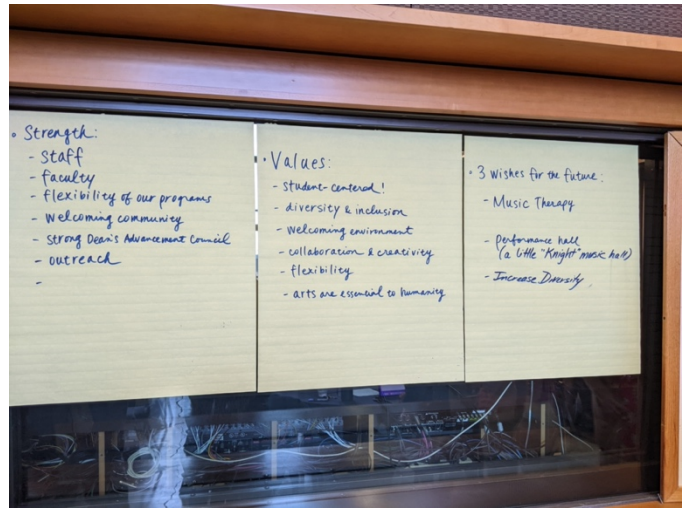 • Strength:
- Staff
- faculty
- flexibility of our programs
- Welcoming community
- Strong Dean's Advancement Council
- outreach
-
• Values:
- student-centered!
- diversity & inclusion
- welcoming environment
- collaboration & creativity
- flexibility
- arts are essential to humanity
• 3 wishes for the future:
- Music Therapy
- Performance hall
(a little "Knight" music hall)
- Increase Diversity